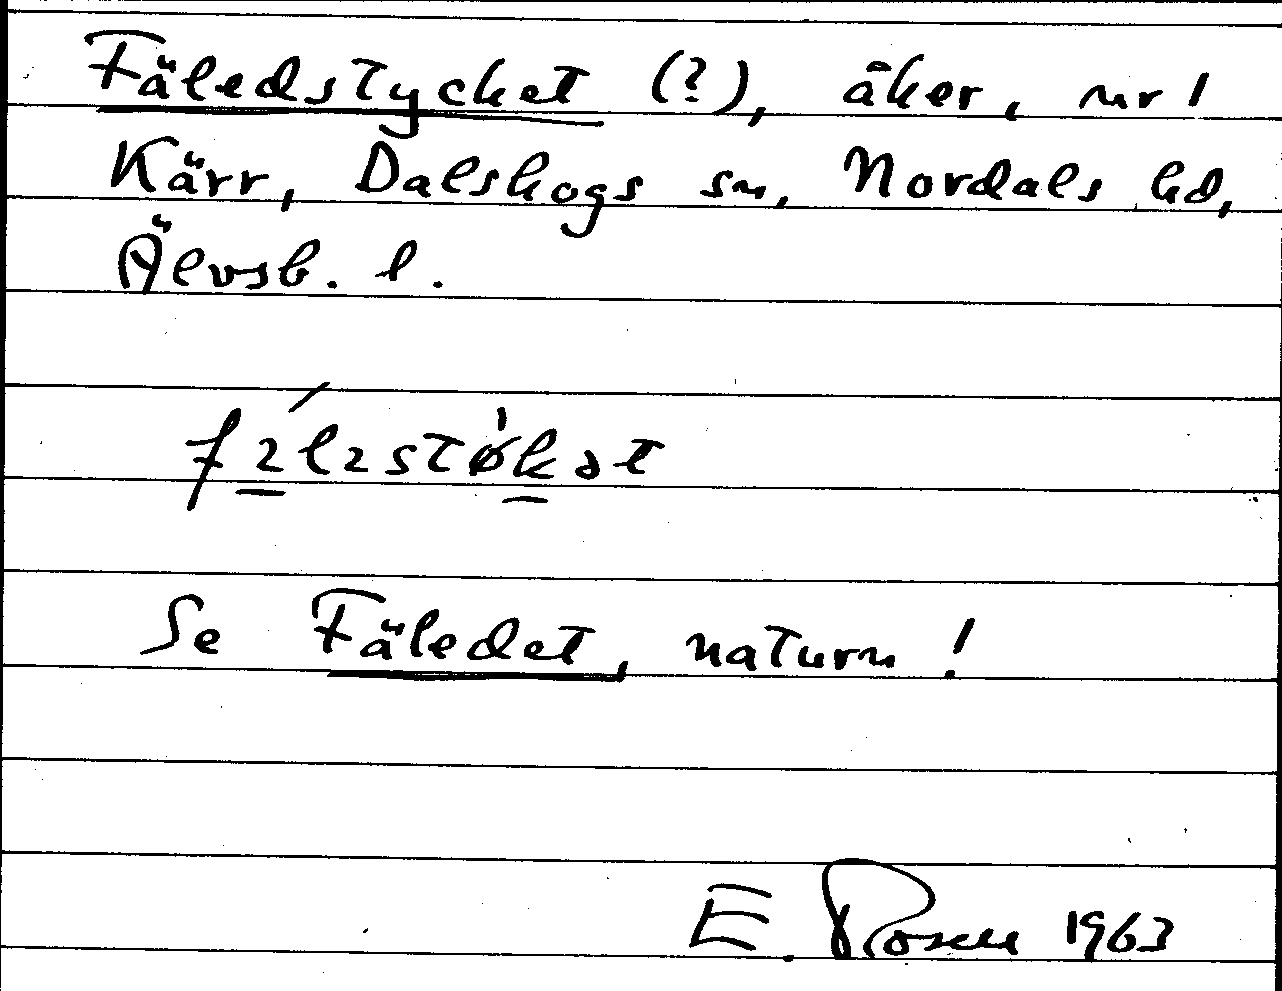 Fäledstycket (?), åker, nr 1
Kärr, Dalskogs sn, Nordals hd,
Älvsb. l.
Se Fäledet, naturn!
E. Rosen 1963